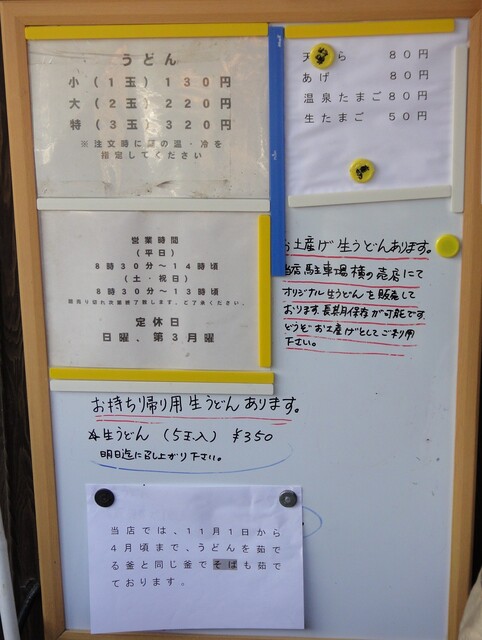 うどん
小(1玉)130円
大(2玉)220円
特(3玉)320円
※注文時に麺の温・冷を
指定してください
天ぷら 80円
あげ 80円
温泉たまご 80円
生たまご 50円
営業時間
(平日)
8時30分～14時頃
(土・祝日)
8時30分～13時頃
麺売り切れ次第終了致します。ご了承ください。
定休日
日曜、第3月曜
お土産げ生うどんあります。
当店駐車場横の売店にて
オリジナル生うどんを販売して
おります。長期保存が可能です。
どうぞお土産げとしてご利用
下さい。
お持ち帰り用生うどんあります。
生うどん(5玉入) ¥350
明日迄に召し上がり下さい。
当店では、11月1日から
4月頃まで、うどんを茹で
る釜と同じ釜でそばも茹で
ております。